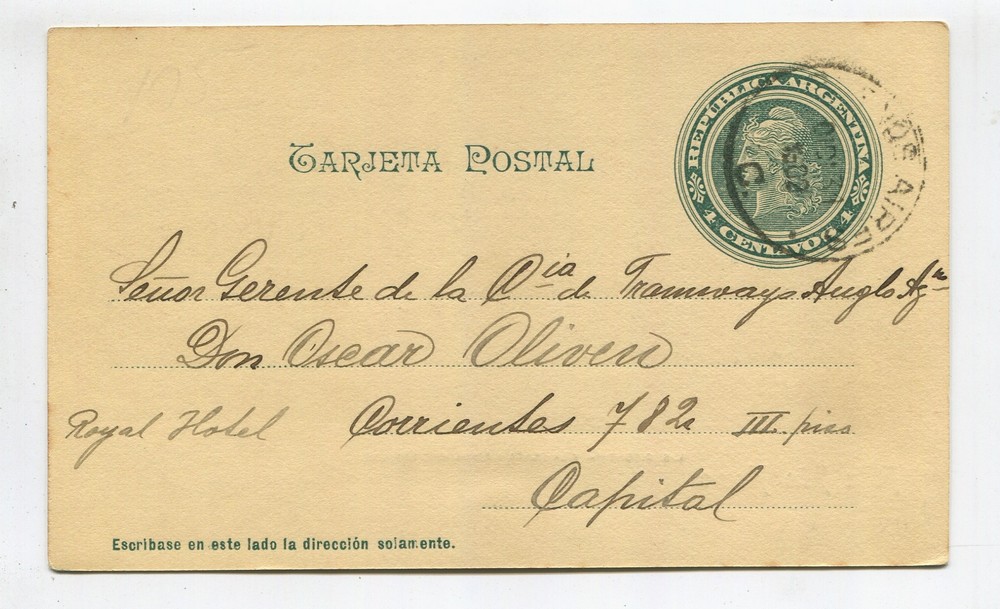 REPÚBLICA ARGENTINA
4 CENTAVOS 4
AIRES
TARJETA POSTAL
Señor Gerente de la Cia de Tramways Anglo Arg.
Don Oscar Oliven
Royal Hotel Corrientes 782 III. piso
Capital
Escribase en este lado la dirección solamente.